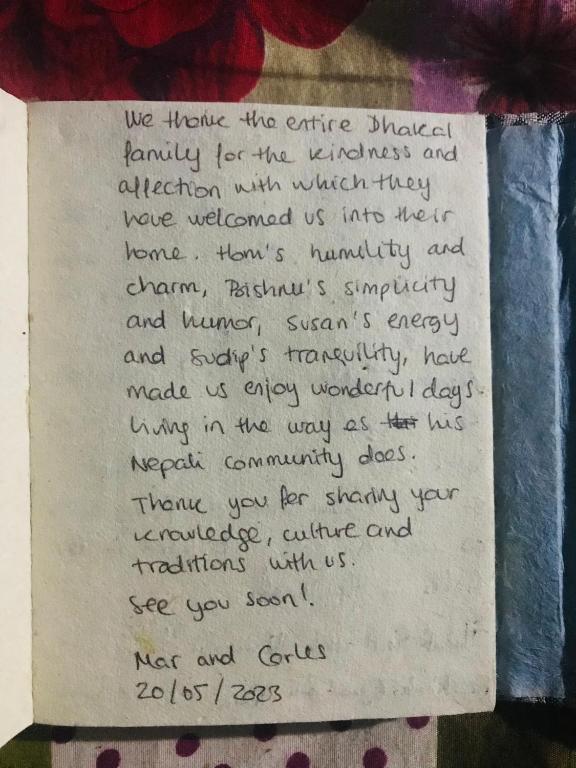 We thank the entire Dhakal
family for the kindness and
affection with which they
have welcomed us into their
home. Hom's humility and
charm, Bishnu's simplicity
and humor, Susan's energy
and Sudip's tranquility, have
made us enjoy wonderful days
living in the way as his
Nepali community does.
Thank you for sharing your
knowledge, culture and
traditions with us.
See you soon!
Mar and Carles
20/05/2023